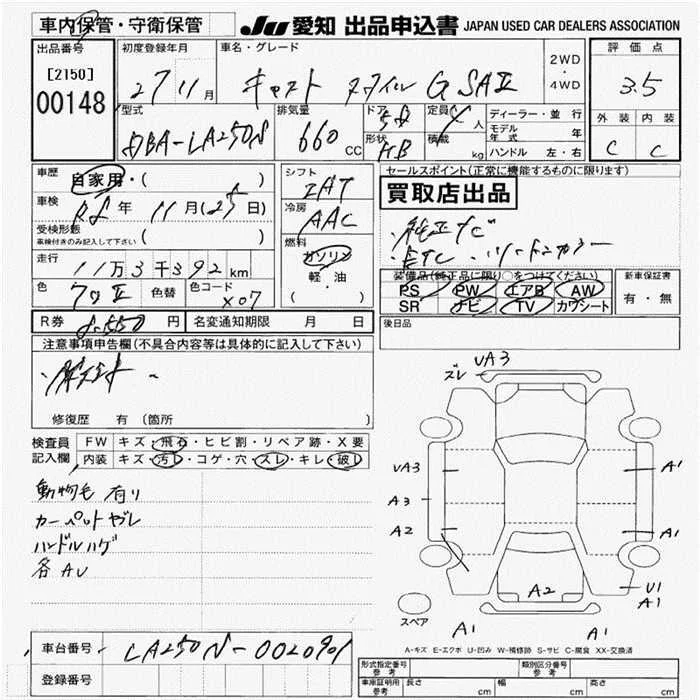 車内保管・守衛保管
JU 愛知 出品申込書 JAPAN USED CAR DEALERS ASSOCIATION
出品番号
[2150]
00148
初度登録年月
27 11月
車名・グレード
キャスト スタイル G SAⅡ
2WD
・
4WD
評価点
3.5
外装 内装
C C
型式
DBA-LA250S
排気量
660 CC
ドア
5D
形状
HB
定員
4人
積載 kg
ディーラー・並行
モデル年式 年
ハンドル 左・右
車歴
自家用・( )
車検
R8年 11月(25日)
受検形態
車検付きのみ記入して下さい ( )
走行
11万3千392km
色
クロⅡ
色替
色コード
X07
シフト
IAT
冷房
AAC
燃料
ガソリン
軽・油
( )
セールスポイント(正常に機能するものに限ります)
買取店出品
・純正ナビ
・ETC
装備品(純正品に限り○をつけてください)
PS PW エアB AW
SR ナビ TV カワシート
新車保証書
有・無
R券 円
名変通知期限 月 日
後日品
注意事項申告欄(不具合内容等は具体的に記入して下さい)
修復歴 有(箇所 )
検査員記入欄
FW キズ・飛石・ヒビ割・リペア跡・X要
内装 キズ・汚レ・コゲ・穴・スレ・キレ・破レ
動物毛 有り
カーペットヤブレ
ハンドルハゲ
各AU
ズレ UA3
UA3
A3
A2
A1
A1
A2
U1
A1
A1
A1
スペア
A-キズ E-エクボ U-凹み W-補修跡 S-サビ C-腐食 XX-交換済
車台番号
LA250S-0020901
登録番号
形式指定番号
参考
類別区分番号
参考
車庫証明用
参考
長さ cm
幅 cm
高さ cm